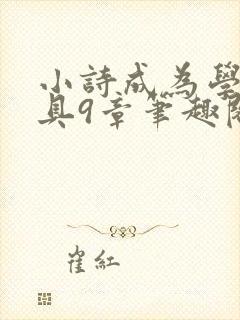 小詩成為學
具9章筆趣閣
崔紅